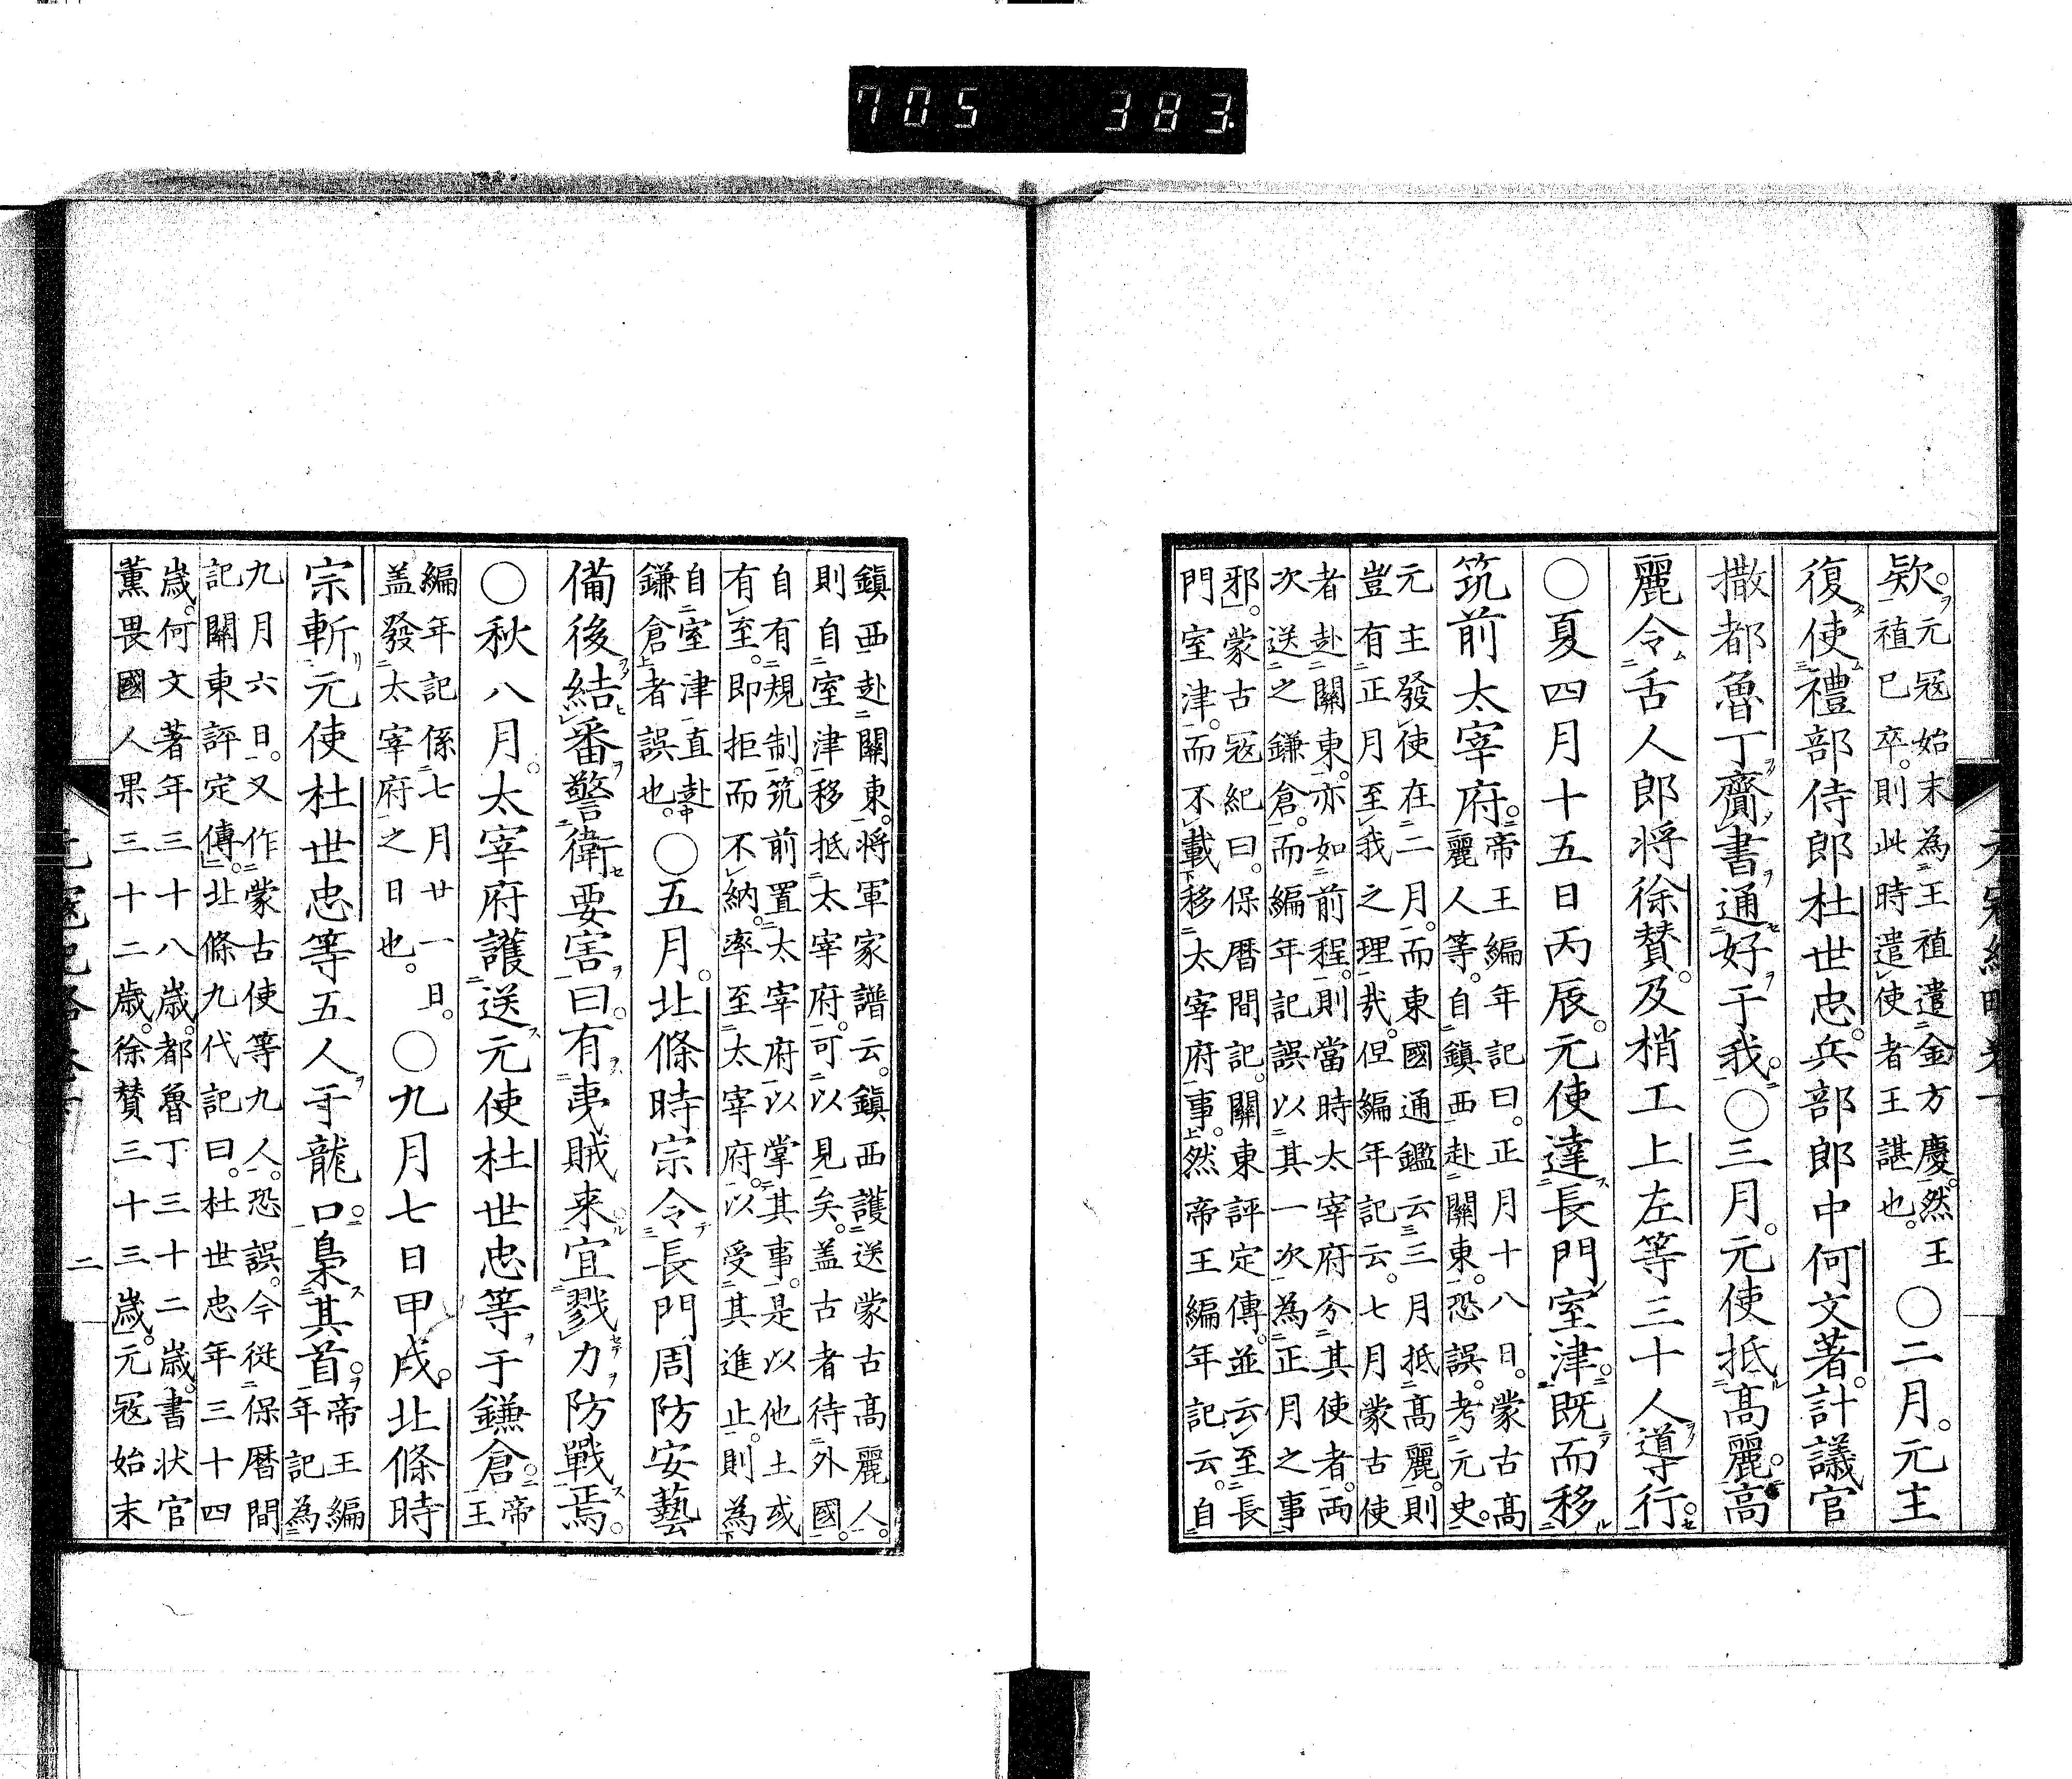 705 383.
款。元寇始末為王禃遣金方慶。然王
禃已卒。則此時遣使者王諶也。〇二月。元主
復使禮部侍郎杜世忠。兵部郎中何文著。計議官
撒都魯丁齎書通好于我。〇三月。元使抵高麗。高
麗令舌人郎將徐賛。及梢工上左等三十人導行。
〇夏四月十五日丙辰。元使達長門室津。既而移
筑前太宰府。帝王編年記曰。正月十八日。蒙古高
麗人等。自鎮西赴關東。恐誤。考元史。
元主發使在二月。而東國通鑑云三月抵高麗。則
豈有正月至我之理哉。但編年記云。七月蒙古使
者赴關東。亦如前程。則當時太宰府分其使者。両
次送之鎌倉。而編年記誤以其一次為正月之事
邪。蒙古寇紀曰。保暦間記。關東評定傳。並云至長
門室津。而不載移太宰府事。然帝王編年記云。自
鎮西赴關東。將軍家譜云。鎮西護送蒙古高麗人。
則自室津移抵太宰府。可以見矣。盖古者待外國。
自有規制。筑前置太宰府。以掌其事。是以他土或
有至。即拒而不納。率至太宰府。以受其進止。則為
自室津直赴
鎌倉者誤也。〇五月。北條時宗令長門周防安藝
備後結番警衛要害。曰。有夷賊来宜戮力防戰焉。
〇秋八月。太宰府護送元使杜世忠等于鎌倉。帝王
編年記係七月廿一日。
盖發太宰府之日也。〇九月七日甲戌。北條時
宗斬元使杜世忠等五人于龍口。梟其首。帝王編
年記為
九月六日。又作蒙古使等九人。恐誤。今從保暦間
記關東評定傳。北條九代記曰。杜世忠年三十四
歲。何文著年三十八歲。都魯丁三十二歲。書状官
薫畏國人果三十二歲。徐賛三十三歲。元寇始末
二